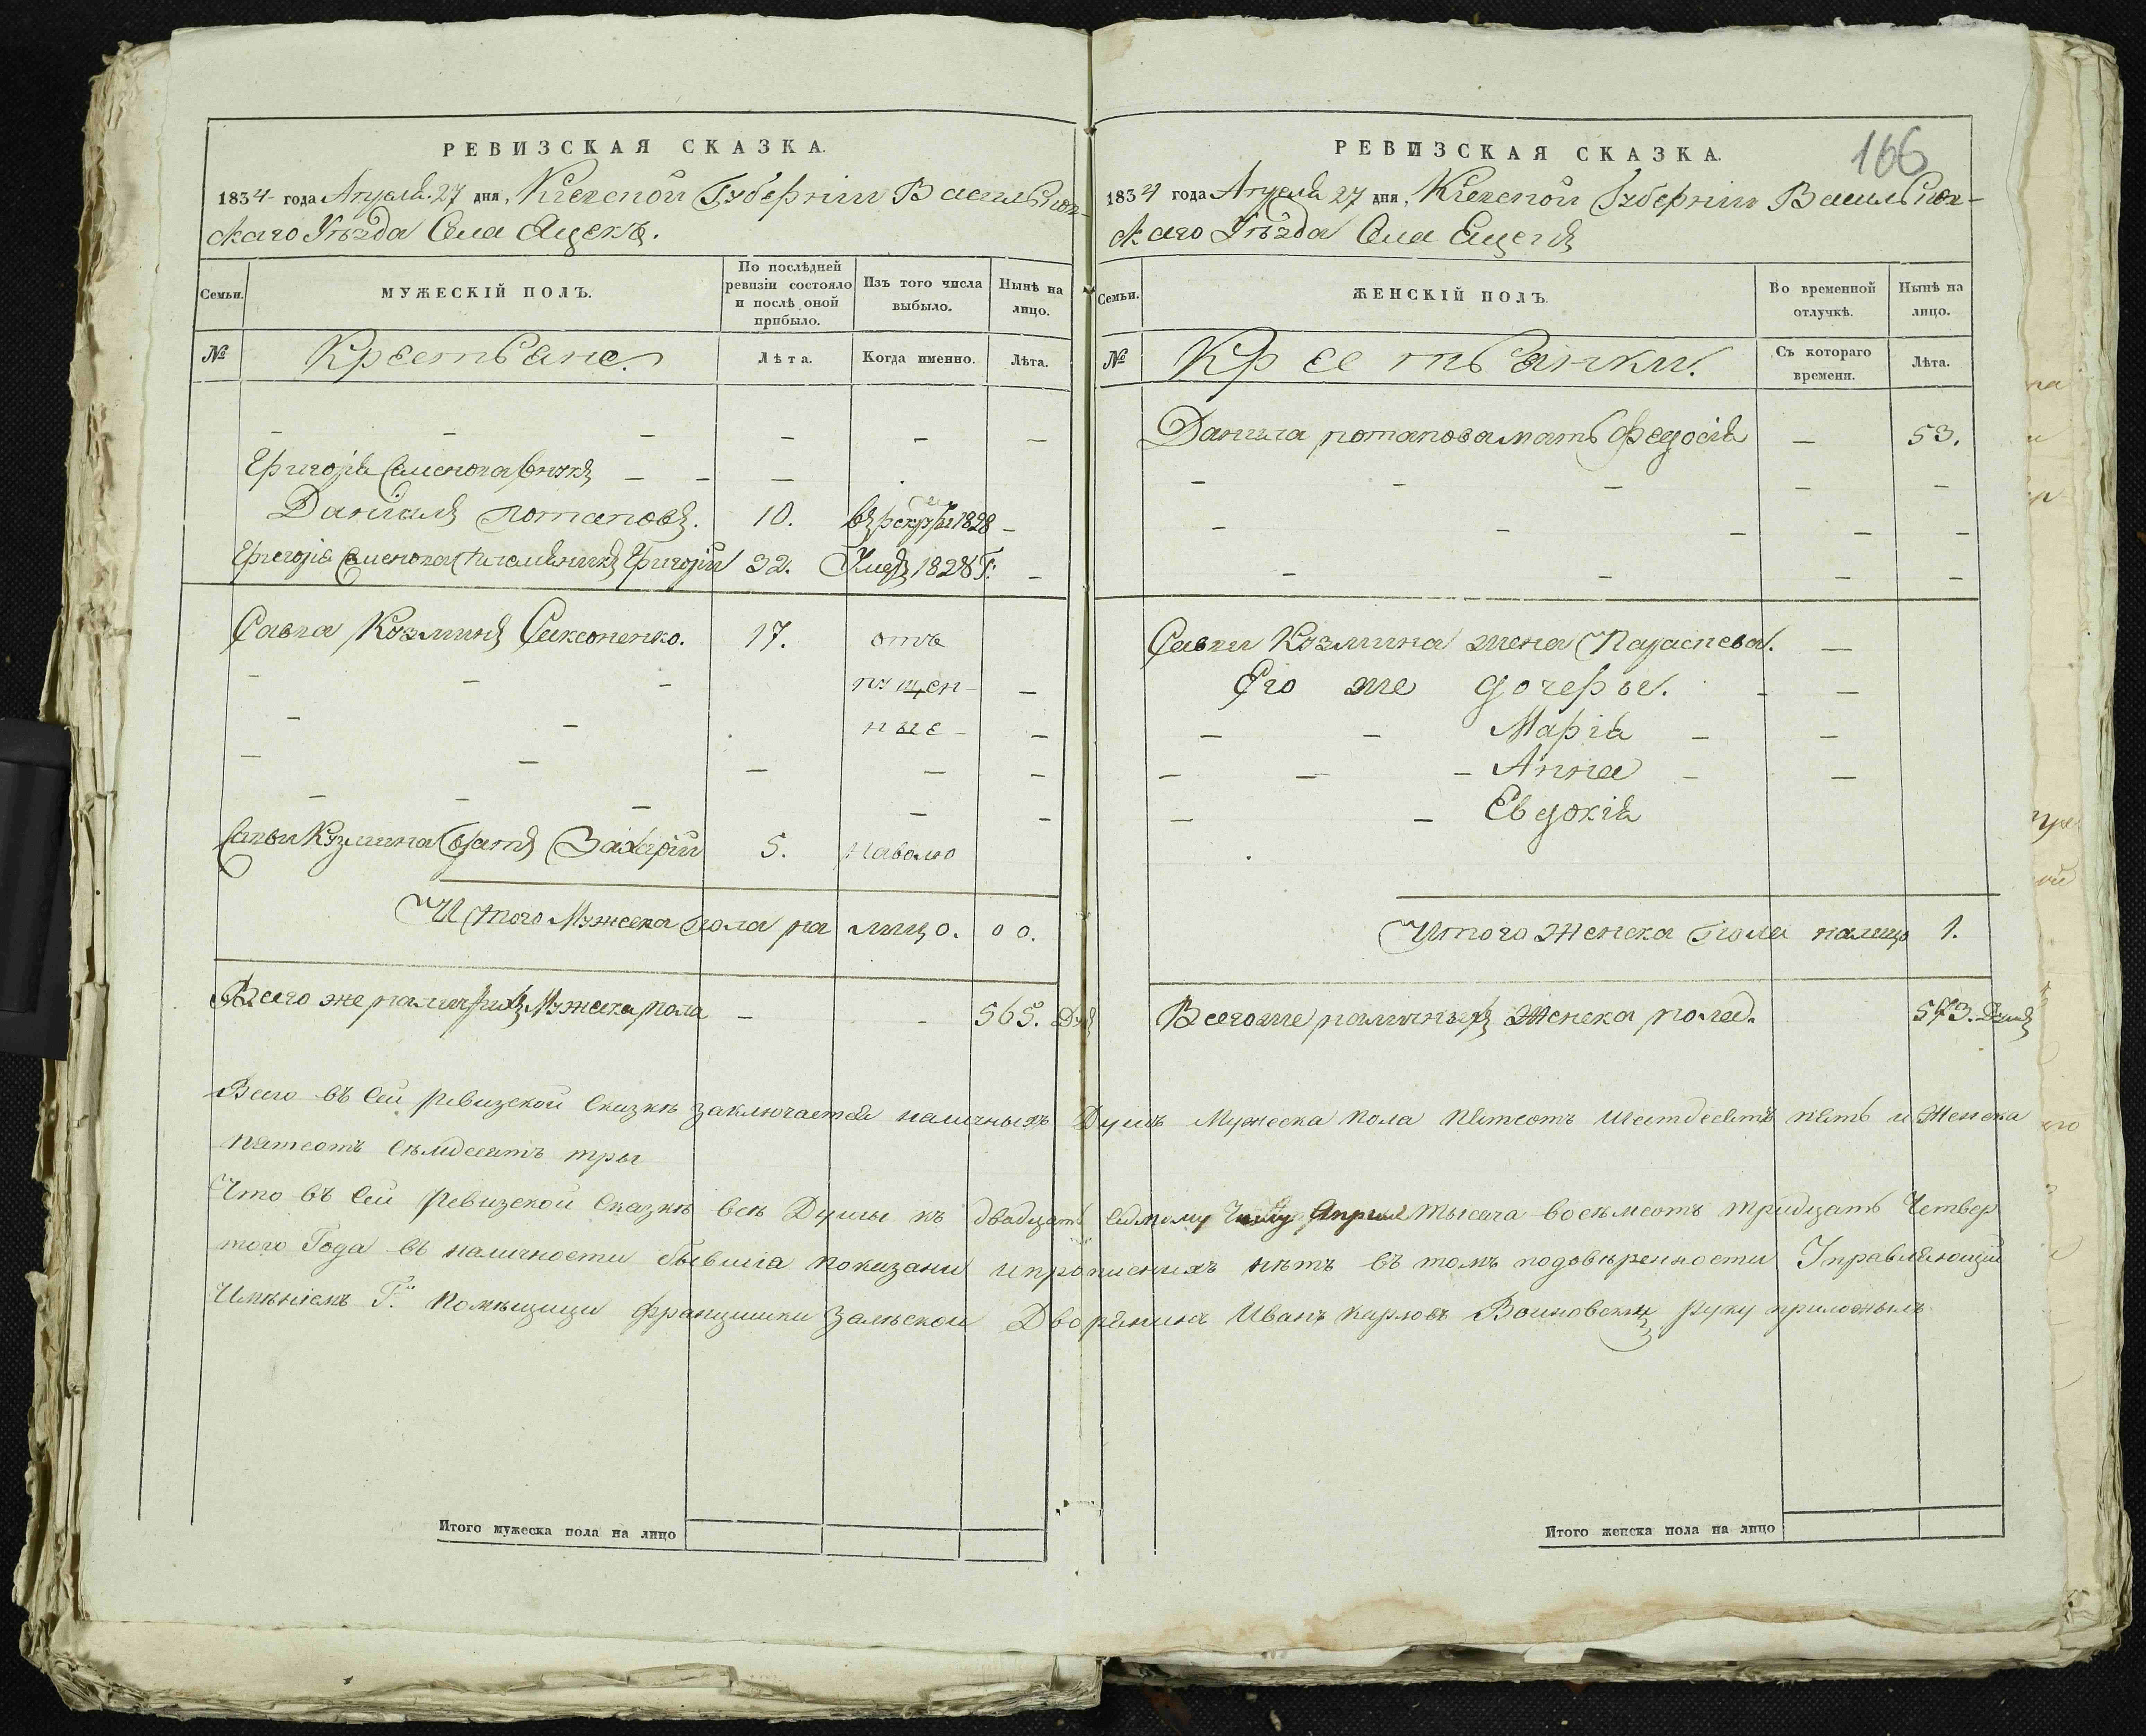 РЕВИЗСКАЯ СКАЗКА.
1834 года Апреля 27 дня, Кіевской Губерніи Васильков-
скаго Уѣзда Села Яцекъ.
Семьи.
МУЖЕСКІЙ ПОЛЪ.
По послѣдней ревизіи состояло и послѣ оной прибыло.
Изъ того числа выбыло.
Нынѣ на лицо.
№
Крестьяне.
Лѣта.
Когда именно.
Лѣта.
Григорія Семенова внукъ
Даніилъ Потаповъ. 10. въ рекр. 1828
Григорія Семенова племѣникъ Григорій 32. Умеръ 1828 г.
Савва Козминъ Саксоненко. 17. отъ
пущен-
ные
Саввы Кузмина братъ Захарій 5. наволю
Итого Мужеска пола на лицо. 00.
Всего же наличныхъ Мужеска пола 565. Душ
РЕВИЗСКАЯ СКАЗКА.
166
1834 года Апреля 27 дня, Кіевской Губерніи Васильков-
скаго Уѣзда Села Яцекъ
Семьи.
ЖЕНСКІЙ ПОЛЪ.
Во временной отлучкѣ.
Нынѣ на лицо.
№
Крестьянки.
Съ котораго времени.
Лѣта.
Данила потапова мать Федосія 53.
Саввы Козмина жена Параскева.
Его же дочеры.
Марія
Анна
Евдокія
Итого Женска Пола налицо 1.
Всего же наличныхъ Женска пола. 573. Душъ
Всего въ сей ревизской Сказкѣ заключается наличныхъ Душъ Мужеска пола пятсотъ шестдесятъ пять и Женска
пятсотъ семдесятъ три
Что въ сей ревизской Сказкѣ всѣ Души къ двадцать седмому числу Апреля тысяча восемсотъ тридцать Четвер
того Года въ наличности бывшіа показани и прописнихъ нѣтъ въ томъ по довѣренности Управляющій
Имѣніемъ Г. Помѣщици Францишки Залѣской Дворянинъ Иванъ Карловъ Воиновскій руку приложилъ
Итого мужеска пола на лицо
Итого женска пола на лицо